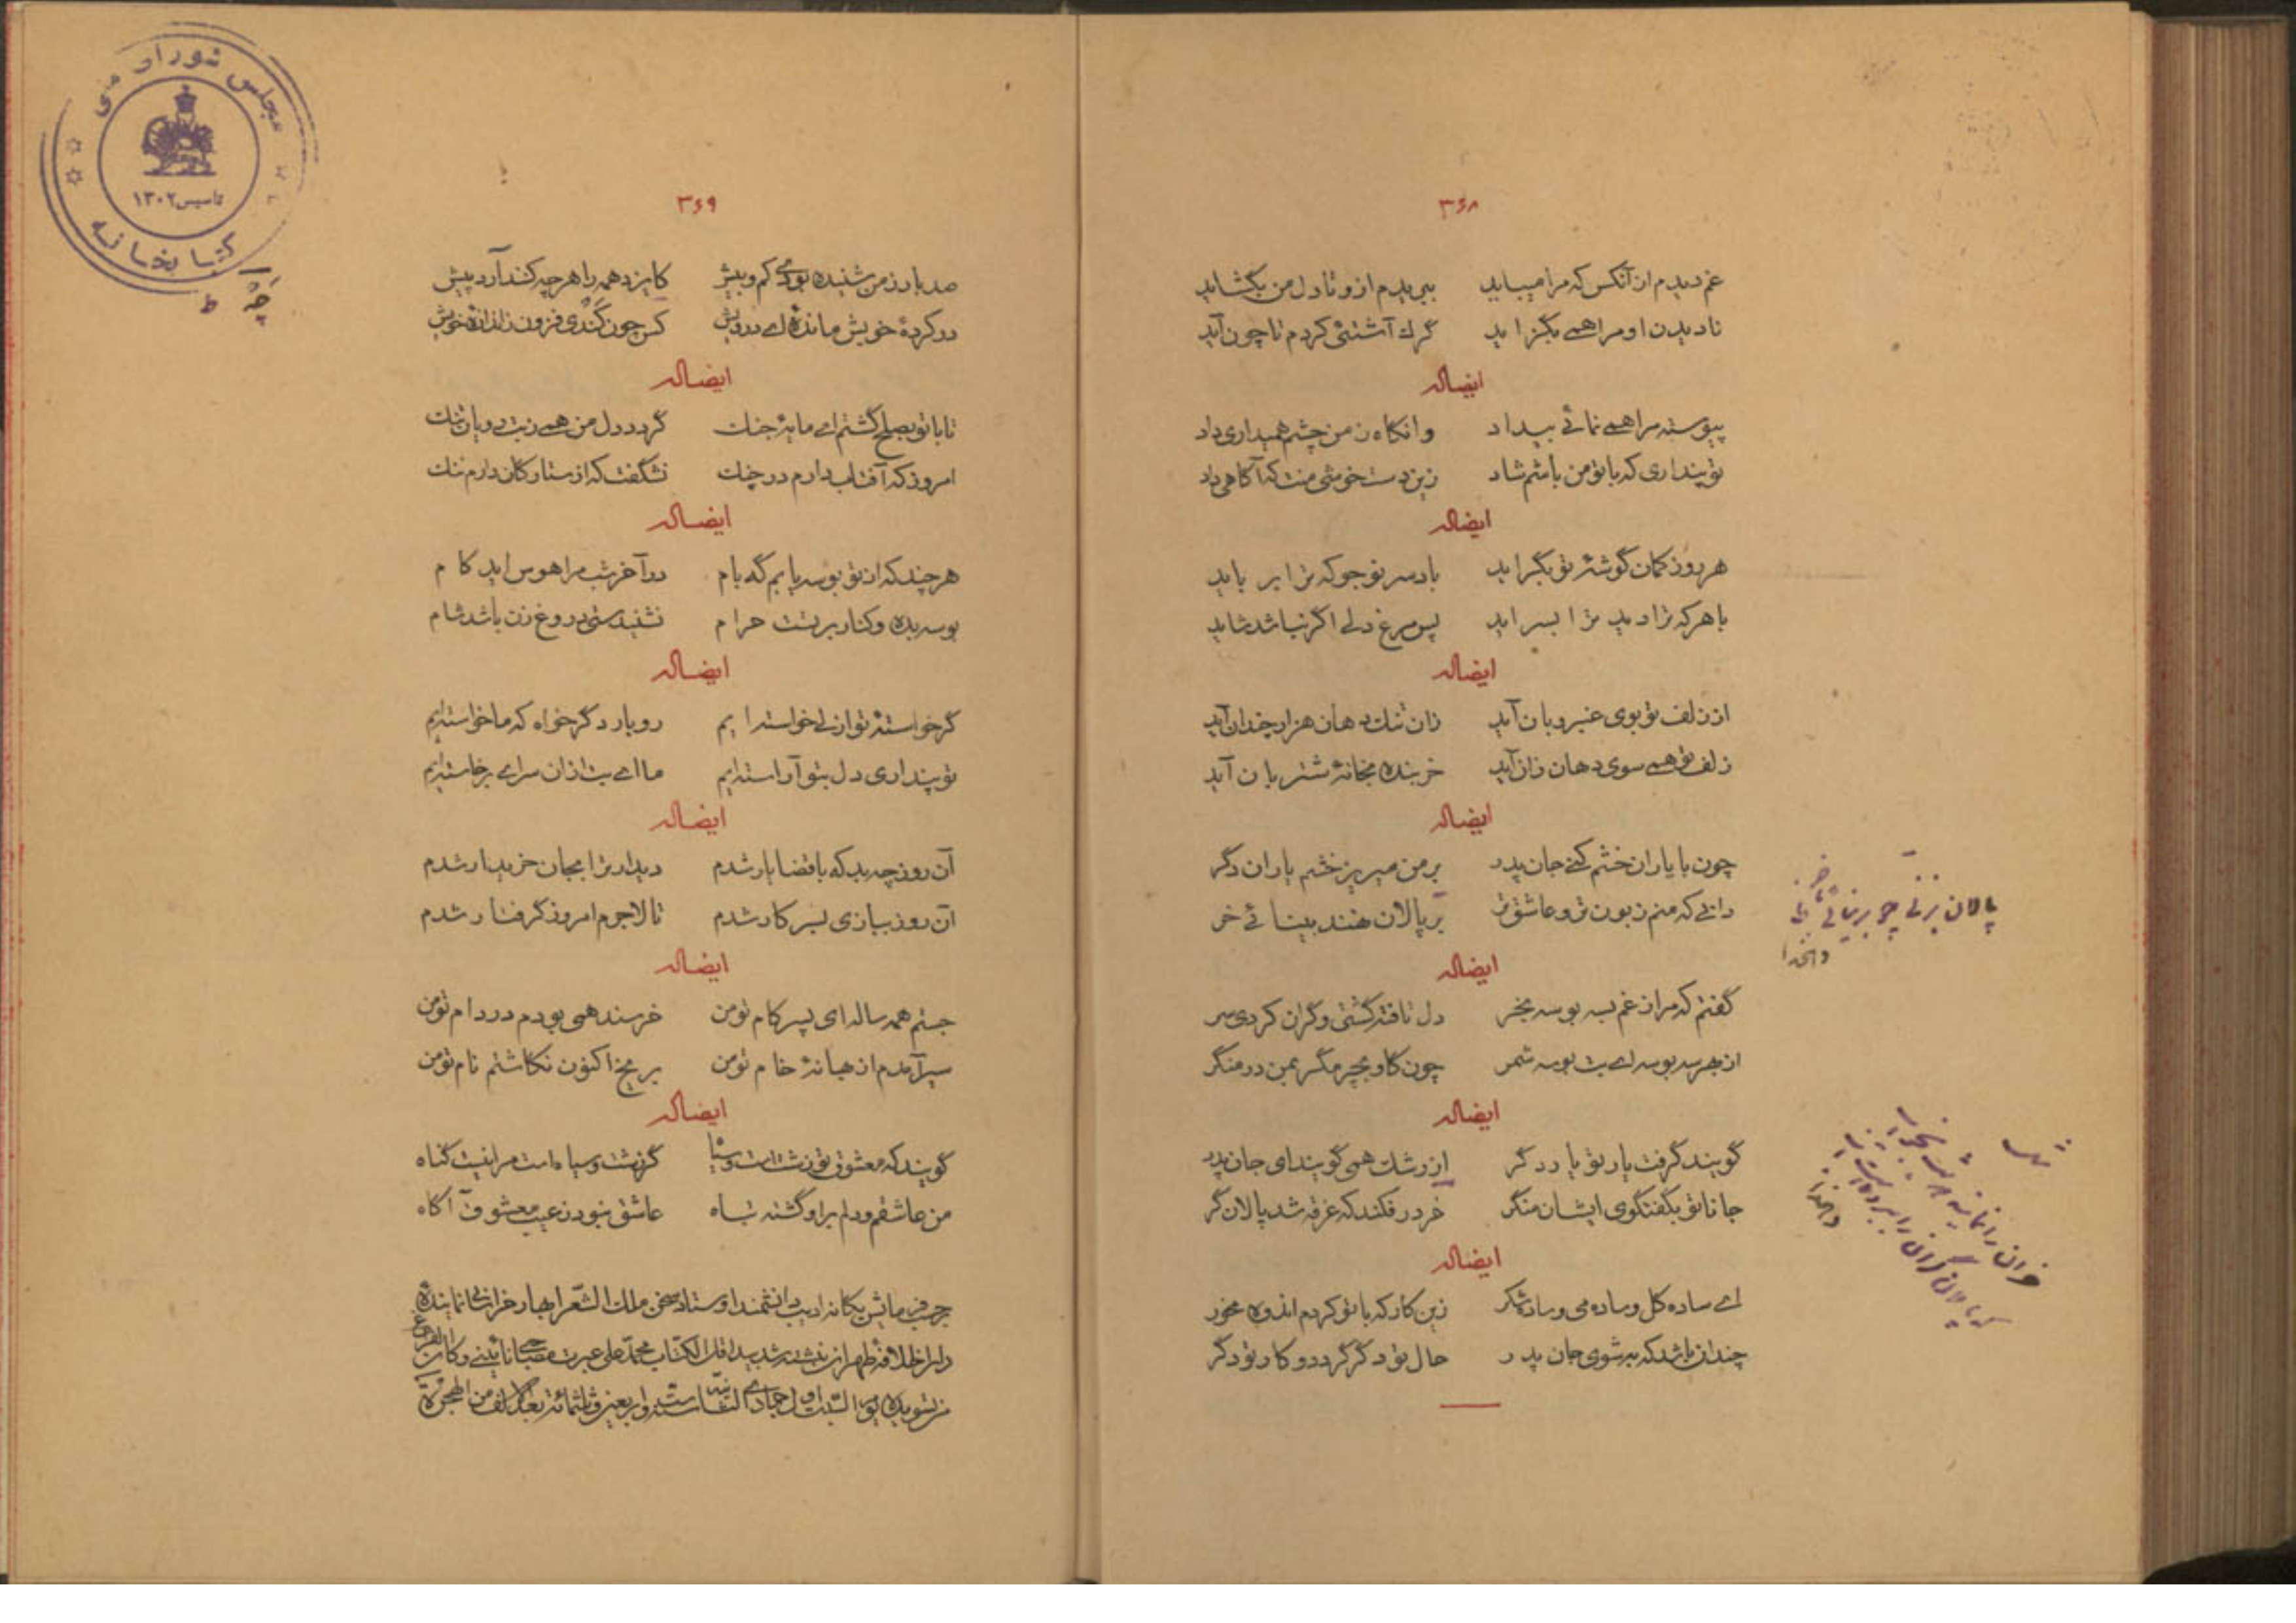 ۳۶۸
غم دیدم از آنکس که مرا میباید ببریدم ازو تا دل من بگشاید
نادیدن او مرا همی بگزاید گرگ آشتئی کردم تا چون آید
ایضاله
پیوسته مرا همی نمائی بیداد وانگاه ز من چشم همیداری داد
تو پنداری که با تو من باشم شاد زین دست خوشی منت که آگاهی داد
ایضاله
هر روز کمان گوشهٔ تو بگراید باد سر تو جو که ترا بر باید
با هر که ترا دید ترا بسراید پس مرغ دلی اگر نباشد شاید
ایضاله
از زلف تو بوی عنبر و بان آید زان تنک دهان هزار چندان آید
زلف تو همی سوی دهان زان آید خربنده بخانهٔ شتربان آید
ایضاله
چون با یاران خشم کنی جان پدر بر من میریز خشم یاران دگر
دانی که منم زبون تر و عاشق تر بر پالان هنند بینائی خر
ایضاله
گفتم که مرا ز غم بسه بوسه بخر دل تافته گشتی و گران کردی سر
از بهر سه بوسه ای بت بوسه شمر چون گاو بچرمگر بمن در منگر
ایضاله
گویند گرفت یار تو یار دگر از رشک همی گویند ای جان پدر
جانا تو بگفتگوی ایشان منگر خر در فکند که غرقه شد پالان گر
ایضاله
ای ساده گل و ساده می و ساده شکر زین کار که با تو کردم اندوه مخور
چندان باشد که بر شوی جان پدر حال تو دگر گردد و کار تو دگر
پالان بزنی چو بر نیائی با خر
۳۶۹
صد بار ز من شنیده بودی کم و بیش کایزد همه را هر چه کند آرد پیش
در کردهٔ خویش ماندهٔ ای درویش کس چون کندی فزون ز اندازهٔ خویش
ایضاله
تا با تو بصلح گشتم ای مایهٔ جنک گردد دل من همی ز بت رویان تنک
امروز که آفتاب دارم در چنک نشگفت که از ستارگان دارم ننک
ایضاله
هر چند که از تو بوسه یابم گه بام در آخر شب مرا هوس اید کام
بوسه بده و کنار بر تست حرام نشنیدستی دروغ زن باشد شام
ایضاله
گر خواستهٔ تو از پی خواسته ایم رو یار دگر خواه که ما خواسته ایم
تو پنداری دل بتو آراسته ایم ما ای بت ازان سرای برخاسته ایم
ایضاله
آن روز چه بد که با قضا یار شدم دیدار ترا بجان خریدار شدم
آن روز ببازی بسر کار شدم تا لاجرم امروز گرفتار شدم
ایضاله
جستم همه ساله ای پسر کام تو من خرسند همی بودم در دام تو من
سیر آمدم از بهانهٔ خام تو من بر یخ اکنون نگاشتم نام تو من
ایضاله
گویند که معشوق تو زشتست و سیاه گر زشت و سیاه است مرا نیست گناه
من عاشقم و دلم بر او گشته تباه عاشق نبود ز عیب معشوق آگاه
حسب فرمایش یگانه ادیب دانشمند اوستاد سخن ملک الشعرا بهار خراسانی نمایندهٔ
دار الخلافه طهران نبشته شد بید اقل الکتاب محمد علی عبرت مصاحبی نائینی و کان الفراغ
من تسویده یوم السبت اول جمادی الثانیه سنه ست و اربعین و ثلثمائة بعد الالف من الهجرة
مجلس شورای ملی
تاسیس ۱۳۰۲
کتابخانه